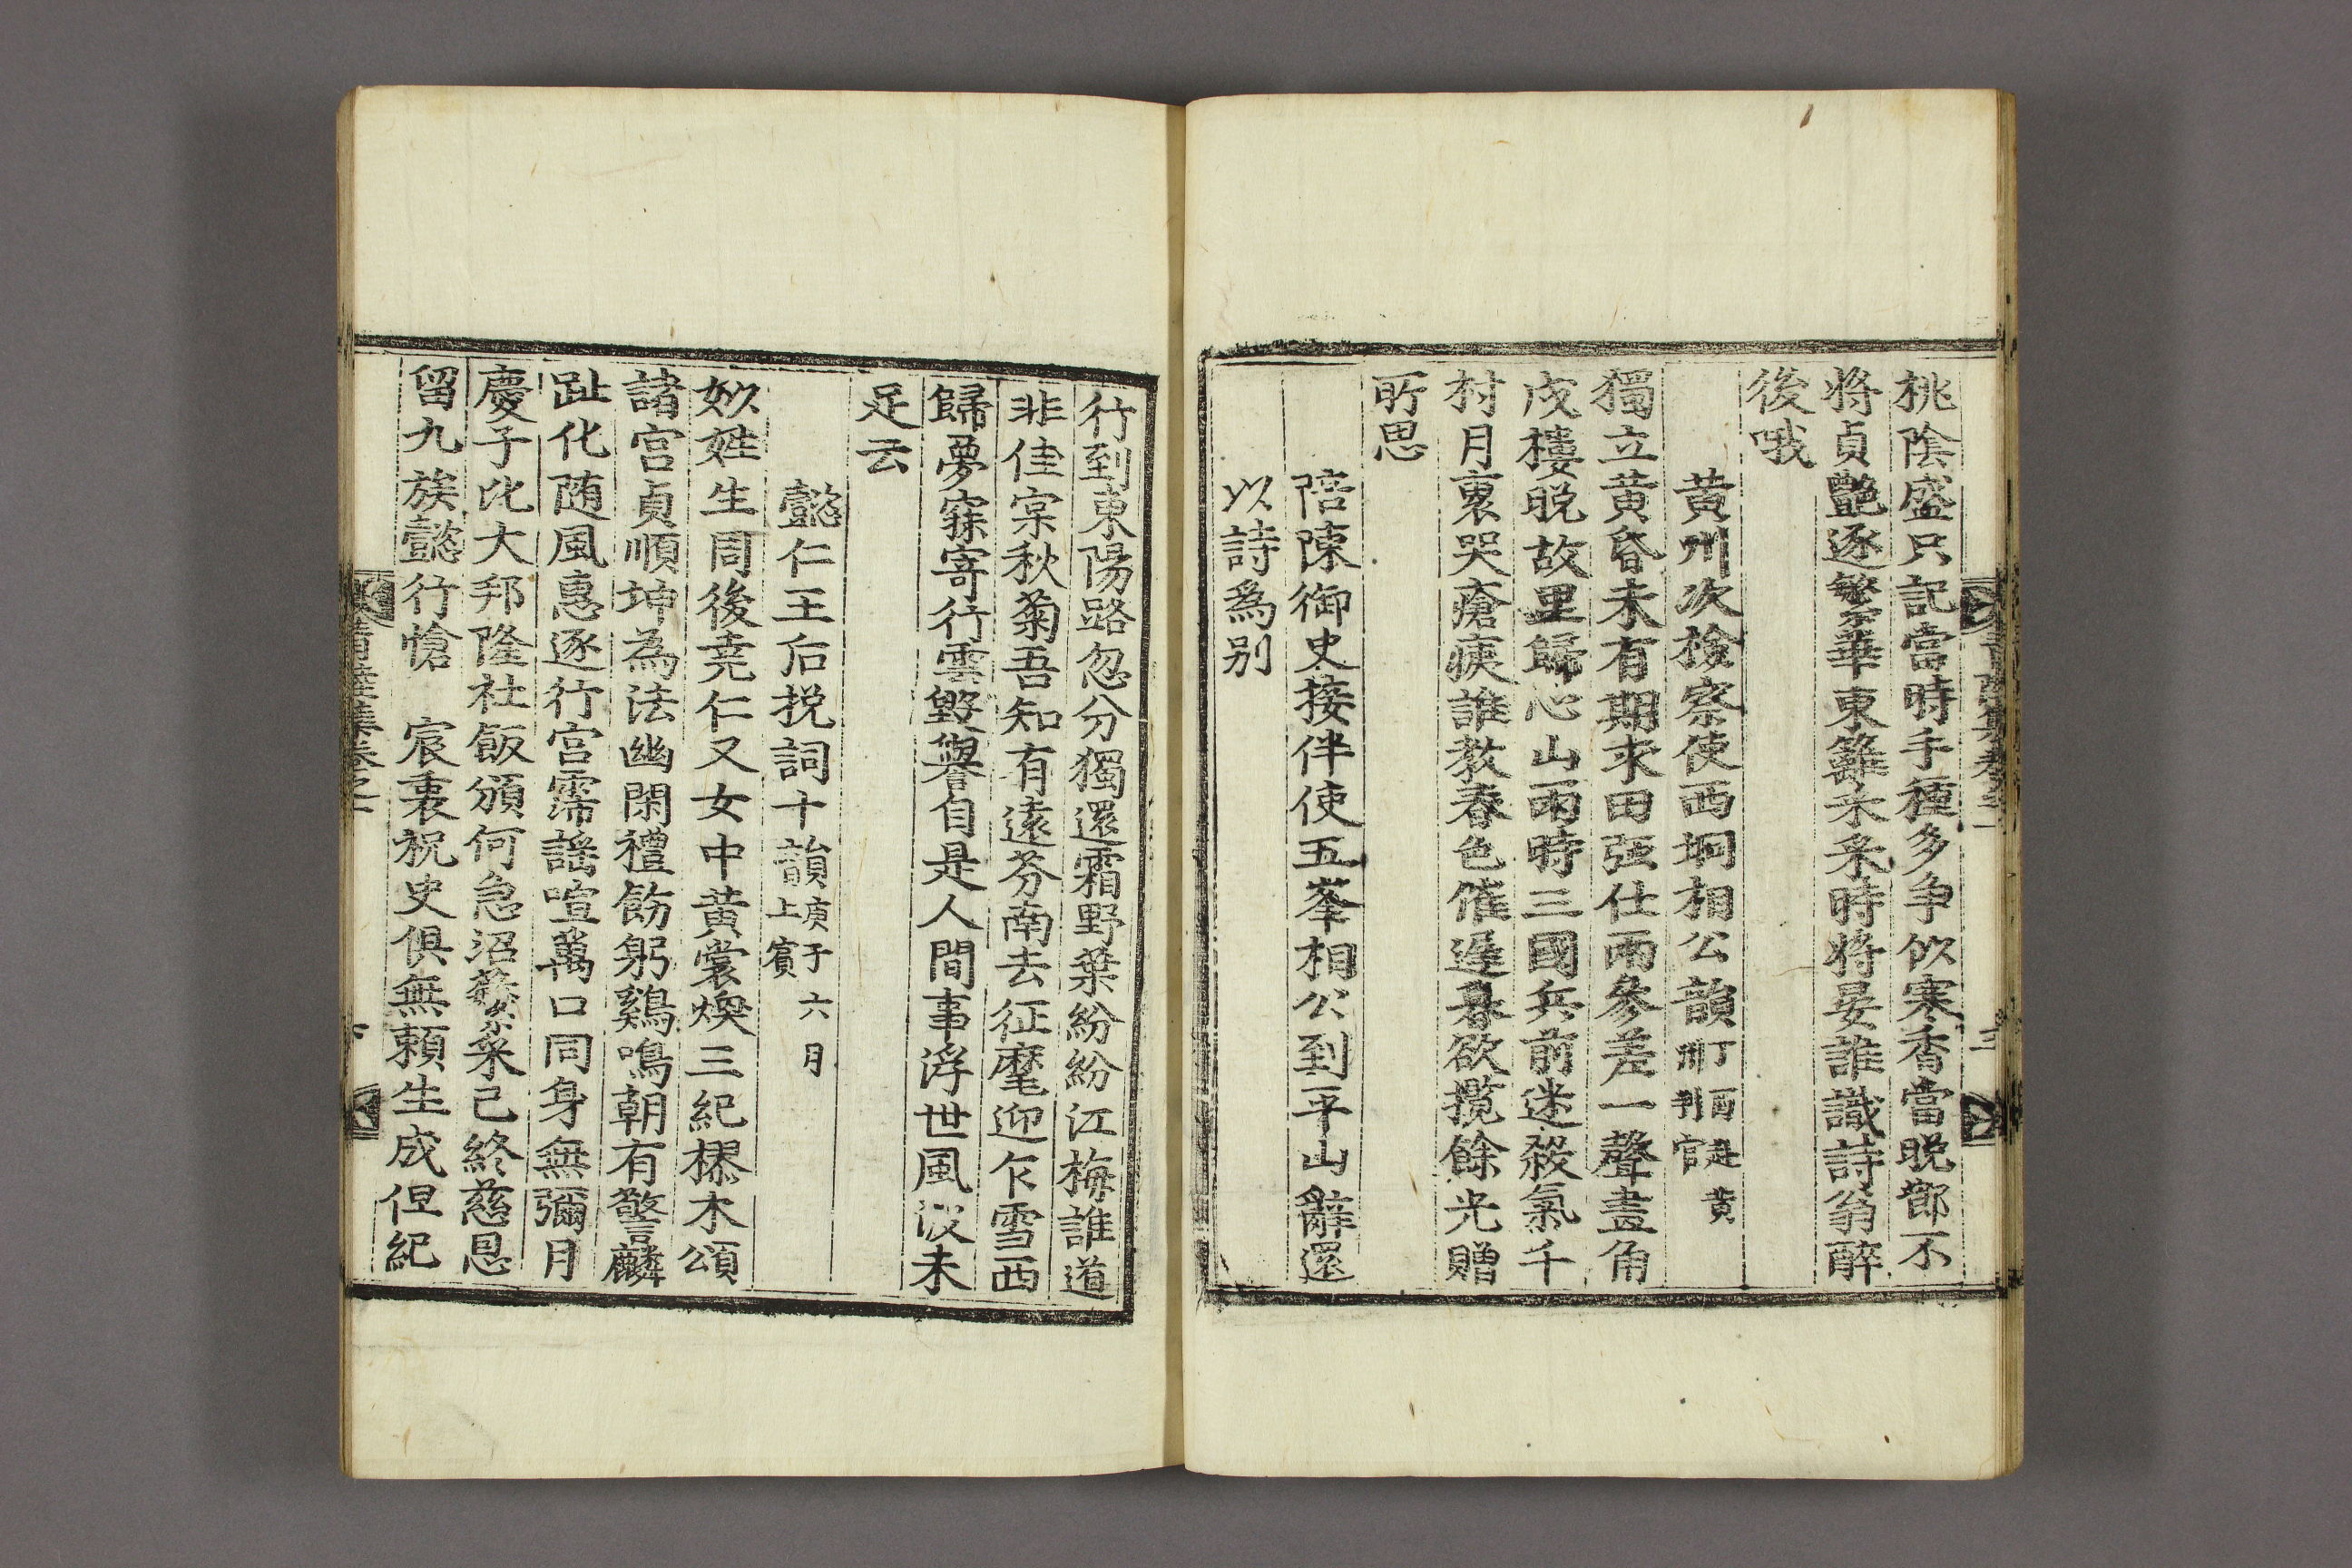 桃陰盛只記當時手種多争似寒香當晚節不
将貞艶逐繁華東籬采采時将晏誰識詩翁醉
後哦
黄州次檢察使西坰相公韻丁酉是黄州判官
獨立黄昏未有期求田強仕兩參差一聲畫角
戍樓晩故里歸心山雨時三國兵前迷殺氣千
村月裏哭瘡痍誰教春色催遲暮欲攬餘光贈
所思
陪陳御史接伴使五峯相公到平山辭還
以詩爲别
行到東陽路忽分獨還霜野葉紛紛江梅誰道
非佳寀秋菊吾知有遠芬南去征麾迎乍雪西
歸夢寐寄行雲毀譽自是人間事浮世風波未
足云
懿仁王后挽詞十韻庚子六月上賓
姒姓生同後堯仁又女中黄裳煥三紀樛木頌
諸宫貞順坤為法幽閑禮飭躬鷄鳴朝有警麟
趾化随風惠逐行宫霈謡喧萬口同身無彌月
慶子比大邦隆社飯頒何急沼蘩采已終慈恩
留九族懿行愴　宸衷祝史俱無頼生成但紀